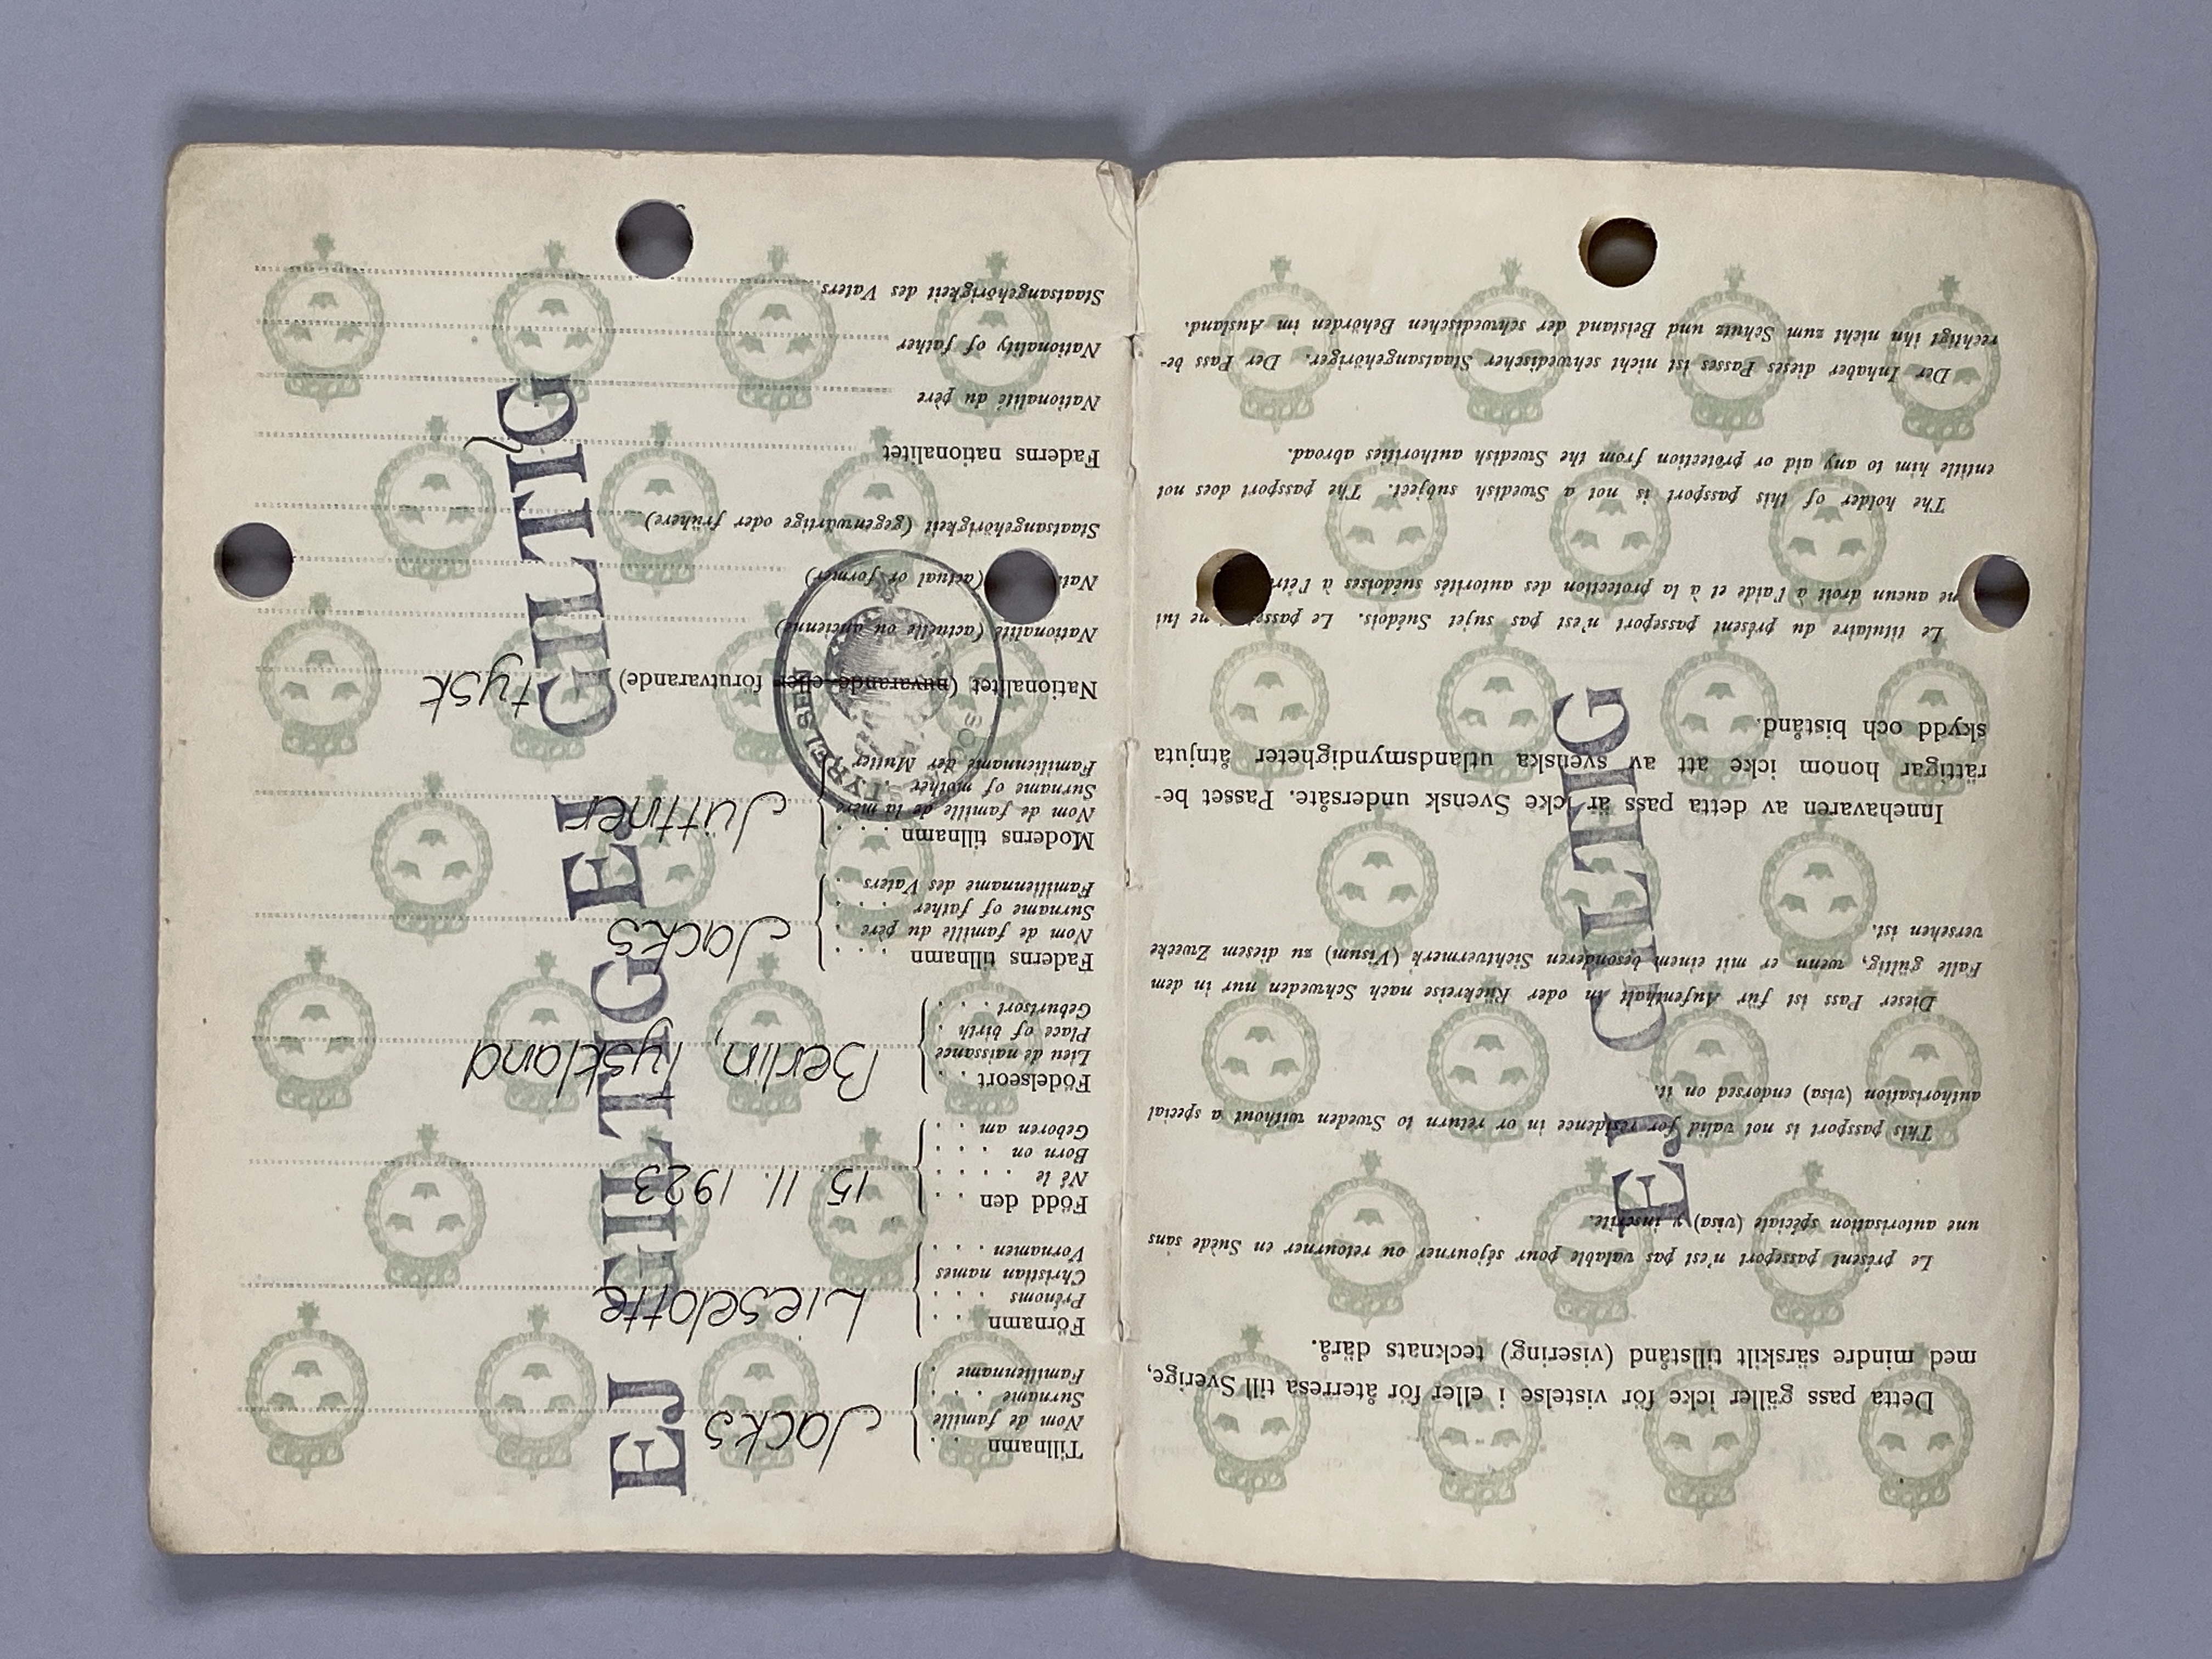 Detta pass gäller icke för vistelse i eller för återresa till Sverige,
med mindre särskilt tillstånd (visering) tecknats därå.
Le présent passeport n'est pas valable pour séjourner ou retourner en Suède sans
une autorisation spéciale (visa) y inscrite.
This passport is not valid for residence in or return to Sweden without a special
authorisation (visa) endorsed on it.
Dieser Pass ist für Aufenthalt in oder Rückreise nach Schweden nur in dem
Falle gültig, wenn er mit einem besonderen Sichtvermerk (Visum) zu diesem Zwecke
versehen ist.
Innehavaren av detta pass är icke Svensk undersåte. Passet be-
rättigar honom icke att av svenska utlandsmyndigheter åtnjuta
skydd och bistånd.
Le titulaire du présent passeport n'est pas sujet Suédois. Le ne lui
aucun droit à l'aide et à la protection des autorités suédoises à
The holder of this passport is not a Swedish subject. The passport does not
entitle him to any aid or protection from the Swedish authorities abroad.
Der Inhaber dieses Passes ist nicht schwedischer Staatsangehöriger. Der Pass be-
rechtigt ihn nicht zum Schutz und Beistand der schwedischen Behörden im Ausland.
EJ GILTIG
Tillnamn . .
Nom de famille
Surname . . .
Familienname .
Jacks
Förnamn . .
Prénoms . . .
Christian names
Vornamen . . .
Lieselotte
Född den . .
Né le . . . .
Born on . . .
Geboren am . .
15. 11. 1923
Födelseort . .
Lieu de naissance
Place of birth .
Geburtsort . . .
Berlin, Tyskland
Faderns tillnamn . . .
Nom de famille du père .
Surname of father . . . .
Familienname des Vaters . .
Jacks
Moderns tillnamn . . .
Nom de famille de la mère
Surname of mother . .
Familienname der Mutter
Jüttner
Nationalitet (nuvarande eller förutvarande) tysk
Nationalité (actuelle ou ancienne)
(actual or former)
Staatsangehörigkeit (gegenwärtige oder frühere)
Faderns nationalitet
Nationalité du père
Nationality of father
Staatsangehörigkeit des Vaters
EJ GILTIG EJ GILTIG